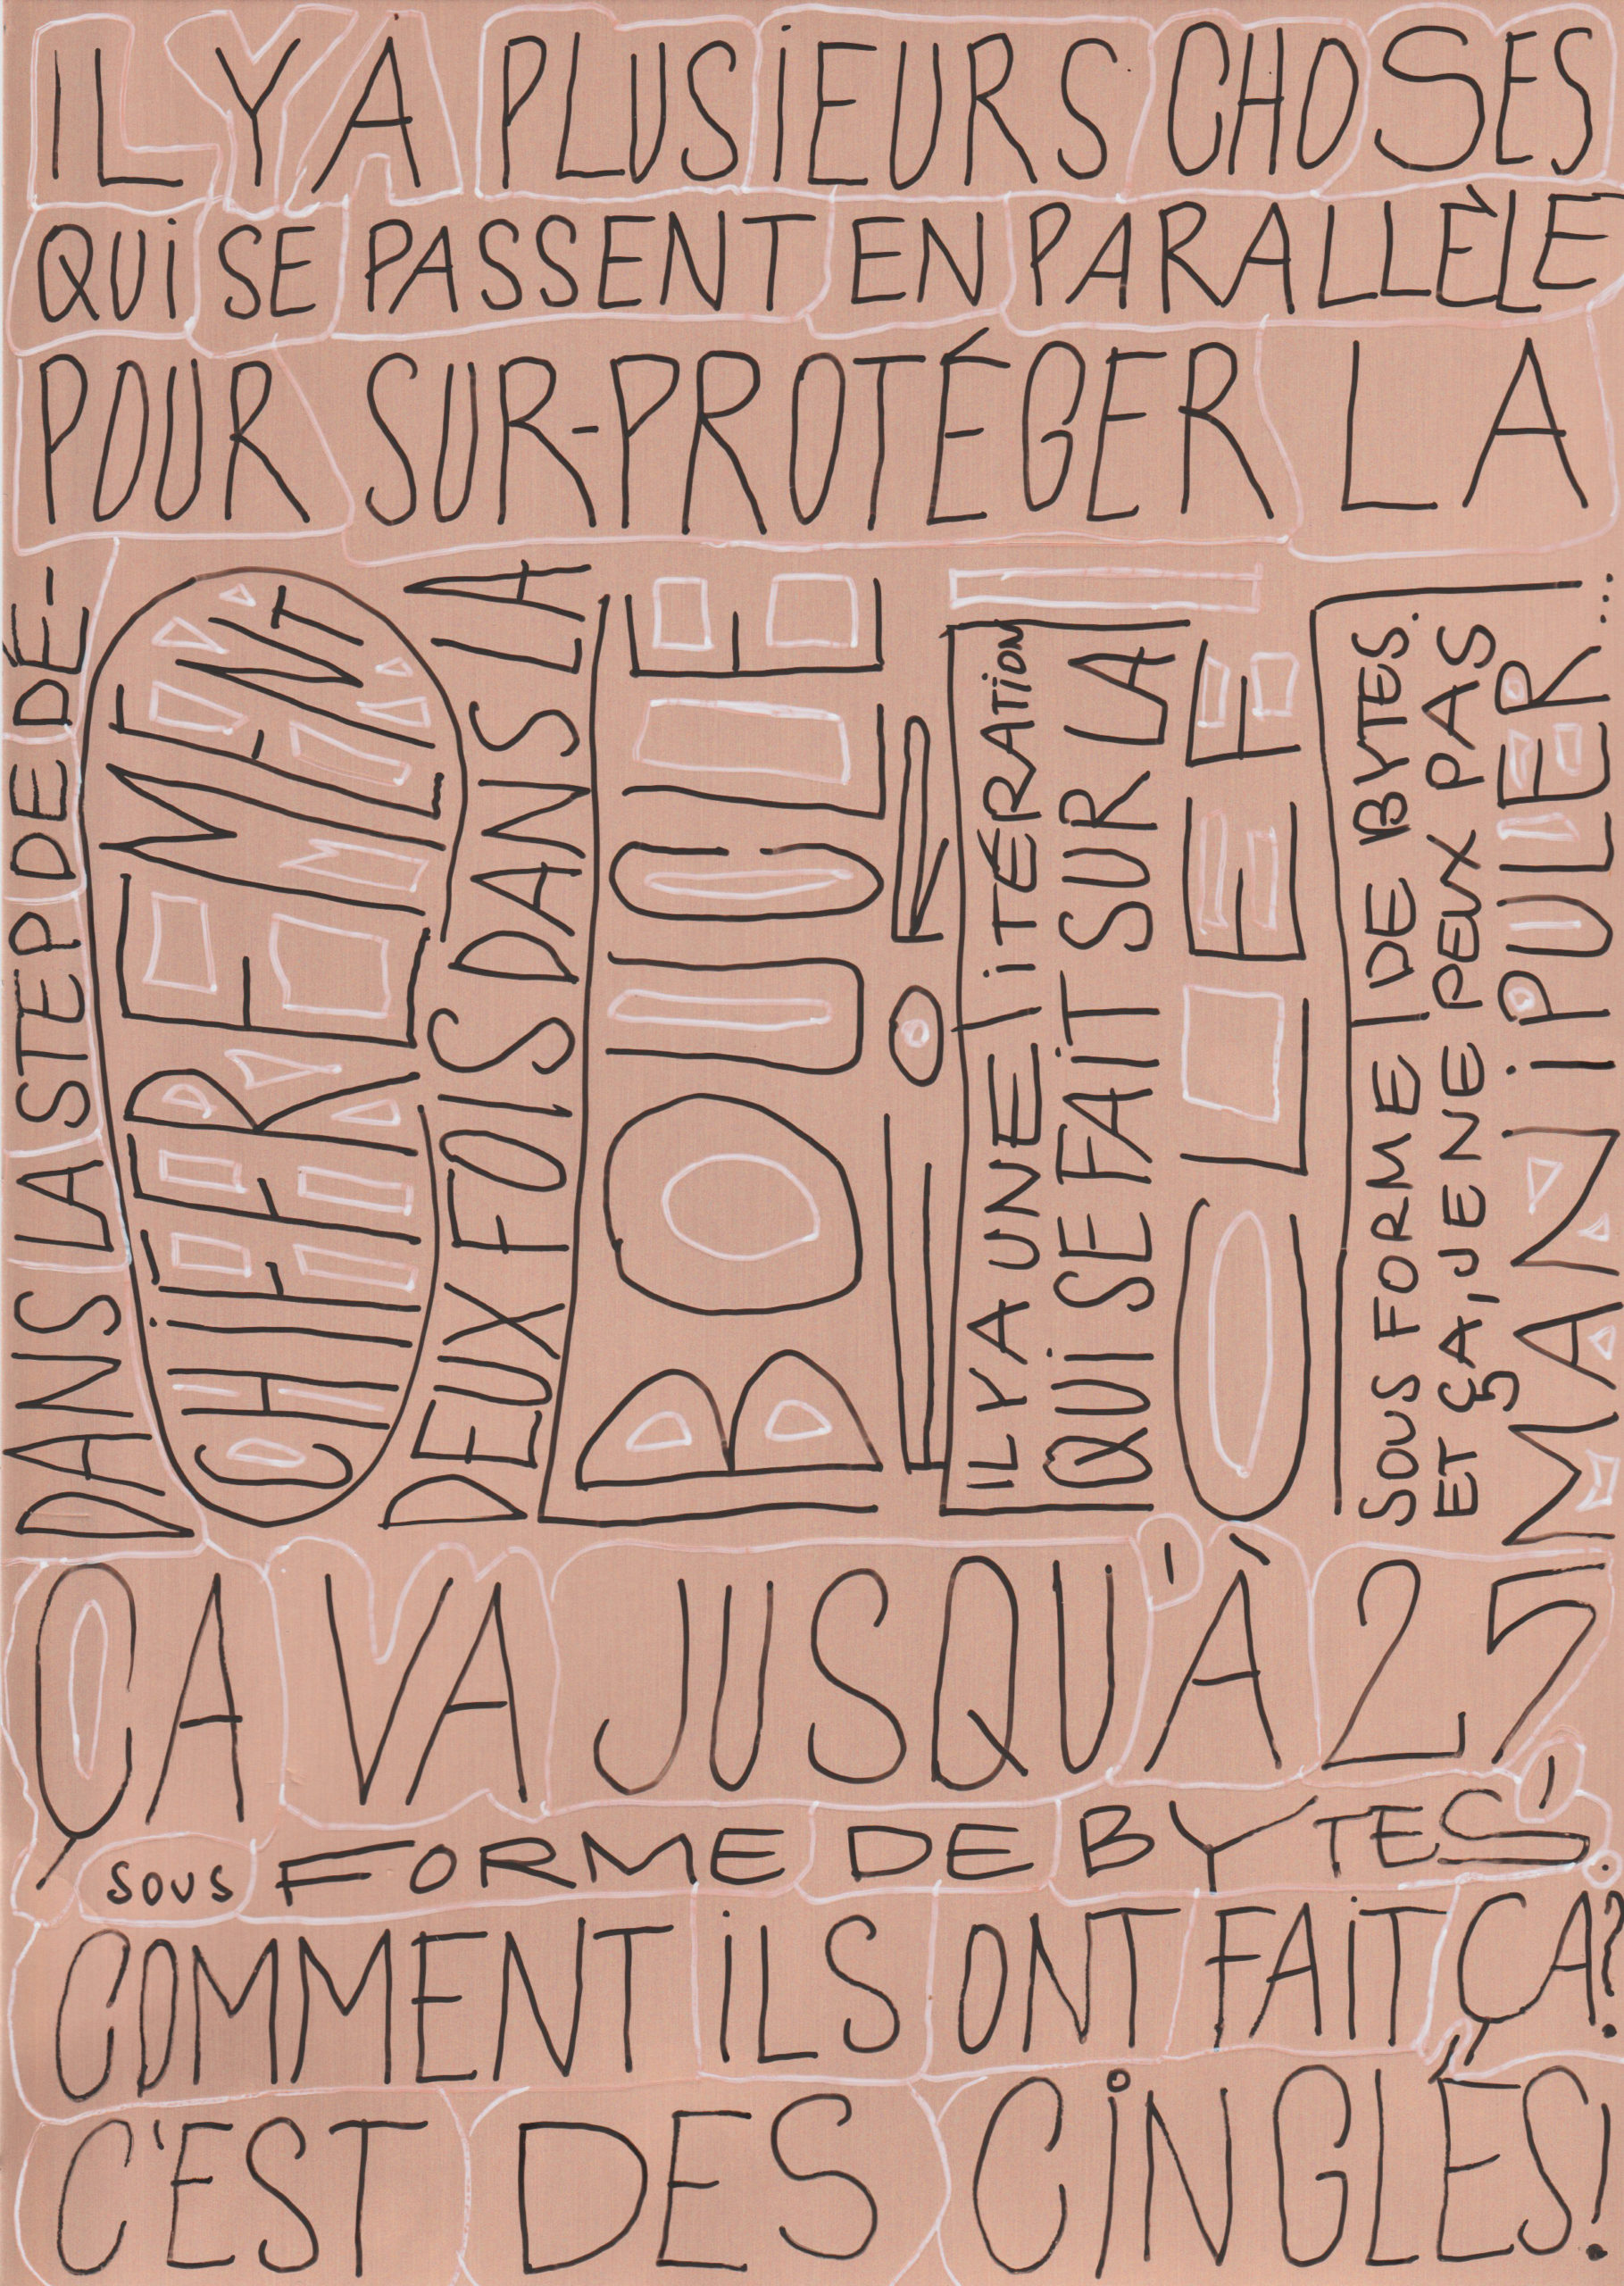 IL Y A PLUSIEURS CHOSES
QUI SE PASSENT EN PARALLÈLE
POUR SUR-PROTÉGER LA
DANS LA STEP DE DÉ-
CHIFFREMENT
DEUX FOIS DANS LA
BOUCLE
IL Y A UNE ITÉRATION
QUI SE FAIT SUR LA
CLEF
SOUS FORME DE BYTES.
ET ÇA, JE NE PEUX PAS
MANIPULER...
ÇA VA JUSQU'À 25
SOUS FORME DE BYTES!
COMMENT ILS ONT FAIT ÇA?
C'EST DES CINGLÉS!